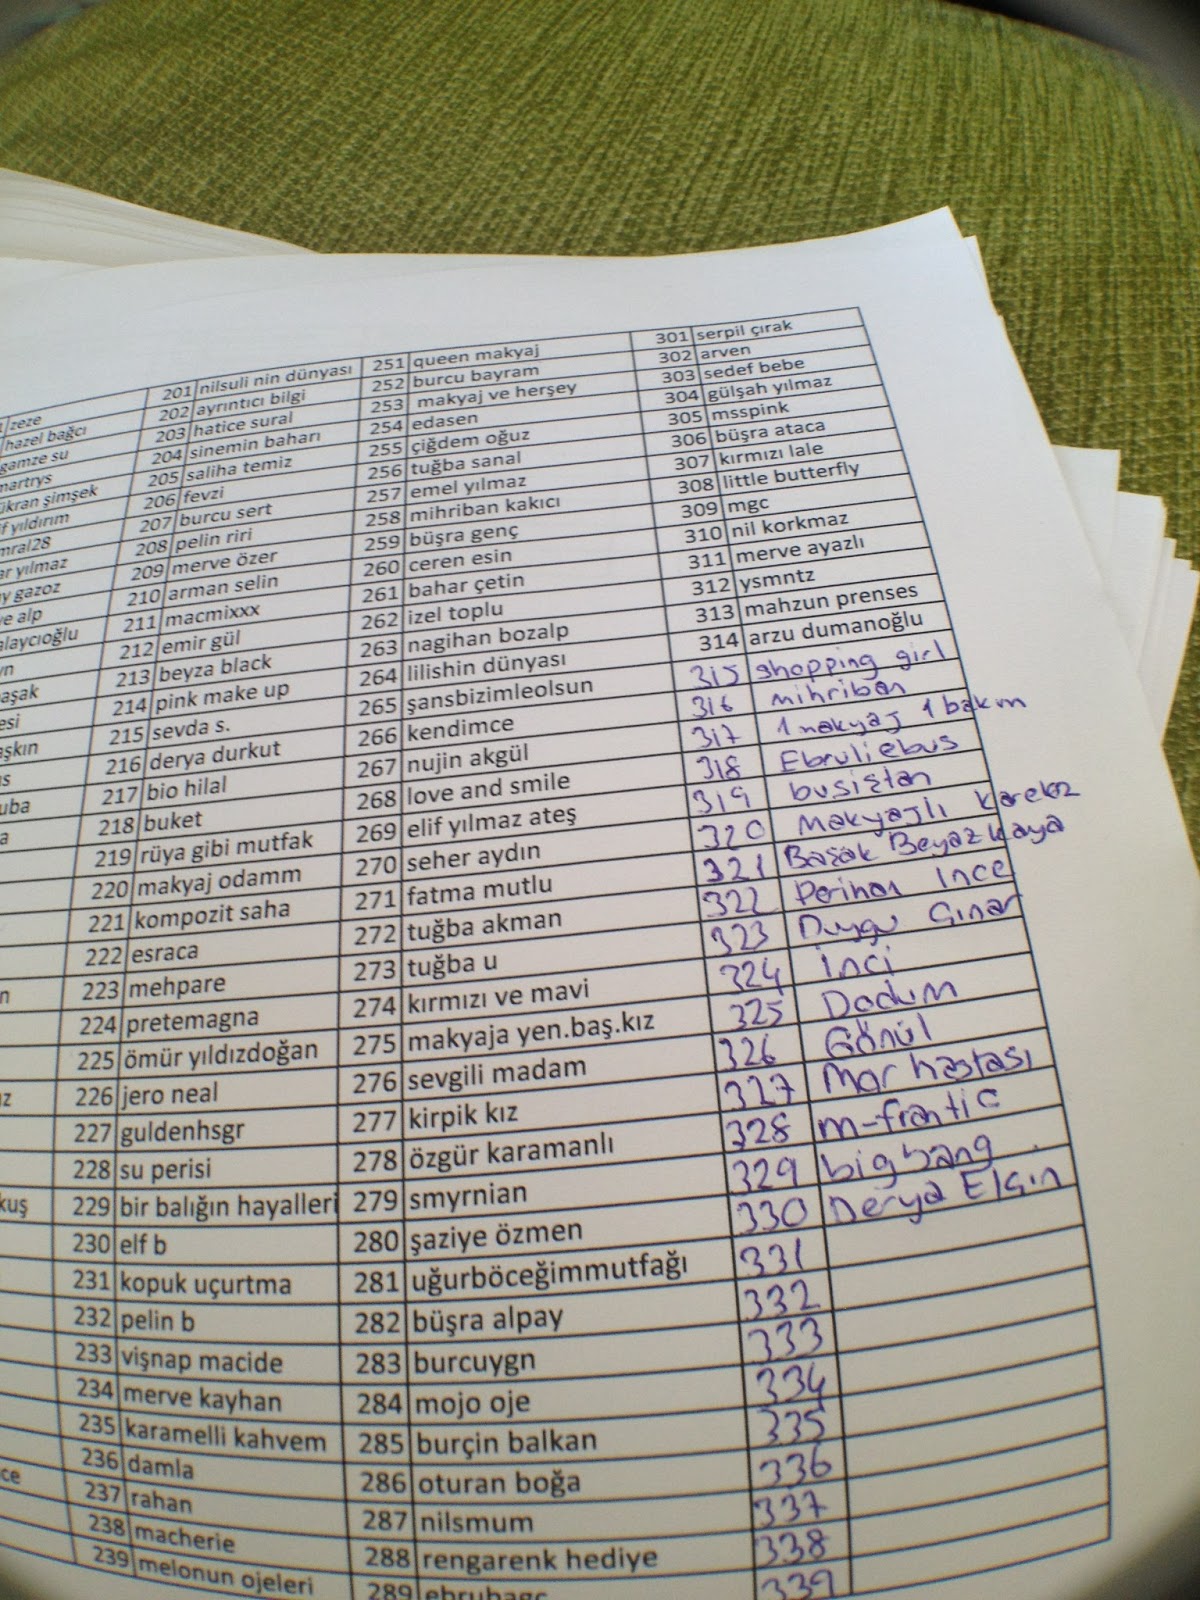 zeze
hazel bağcı
gamze su
martrys
ükran şimşek
if yıldırım
mral28
ar yılmaz
y gazoz
ve alp
alaycıoğlu
yn
aşak
esi
aşkın
us
uba
a
n
ız
kuş
ce
201 nilsuli nin dünyası
202 ayrıntıcı bilgi
203 hatice sural
204 sinemin baharı
205 saliha temiz
206 fevzi
207 burcu sert
208 pelin riri
209 merve özer
210 arman selin
211 macmixxx
212 emir gül
213 beyza black
214 pink make up
215 sevda s.
216 derya durkut
217 bio hilal
218 buket
219 rüya gibi mutfak
220 makyaj odamm
221 kompozit saha
222 esraca
223 mehpare
224 pretemagna
225 ömür yıldızdoğan
226 jero neal
227 guldenhsgr
228 su perisi
229 bir balığın hayalleri
230 elf b
231 kopuk uçurtma
232 pelin b
233 vişnap macide
234 merve kayhan
235 karamelli kahvem
236 damla
237 rahan
238 macherie
239 melonun ojeleri
251 queen makyaj
252 burcu bayram
253 makyaj ve herşey
254 edasen
255 çiğdem oğuz
256 tuğba sanal
257 emel yılmaz
258 mihriban kakıcı
259 büşra genç
260 ceren esin
261 bahar çetin
262 izel toplu
263 nagihan bozalp
264 lilishin dünyası
265 şansbizimleolsun
266 kendimce
267 nujin akgül
268 love and smile
269 elif yılmaz ateş
270 seher aydın
271 fatma mutlu
272 tuğba akman
273 tuğba u
274 kırmızı ve mavi
275 makyaja yen.baş.kız
276 sevgili madam
277 kirpik kız
278 özgür karamanlı
279 smyrnian
280 şaziye özmen
281 uğurböceğimmutfağı
282 büşra alpay
283 burcuygn
284 mojo oje
285 burçin balkan
286 oturan boğa
287 nilsmum
288 rengarenk hediye
289 ebrubagc
301 serpil çırak
302 arven
303 sedef bebe
304 gülşah yılmaz
305 msspink
306 büşra ataca
307 kırmızı lale
308 little butterfly
309 mgc
310 nil korkmaz
311 merve ayazlı
312 ysmntz
313 mahzun prenses
314 arzu dumanoğlu
315 shopping girl
316 mihriban
317 1 makyaj 1 bakım
318 Ebruliebus
319 busiştan
320 Makyajlı
321 Başak Beyazkaya
322 Perihan İnce
323 Duygu Çınar
324 İnci
325 Dadum
326 Gönül
327 Mor hastası
328 m-frantic
329 bigbang
330 Derya Elçin
331
332
333
334
335
336
337
338
339